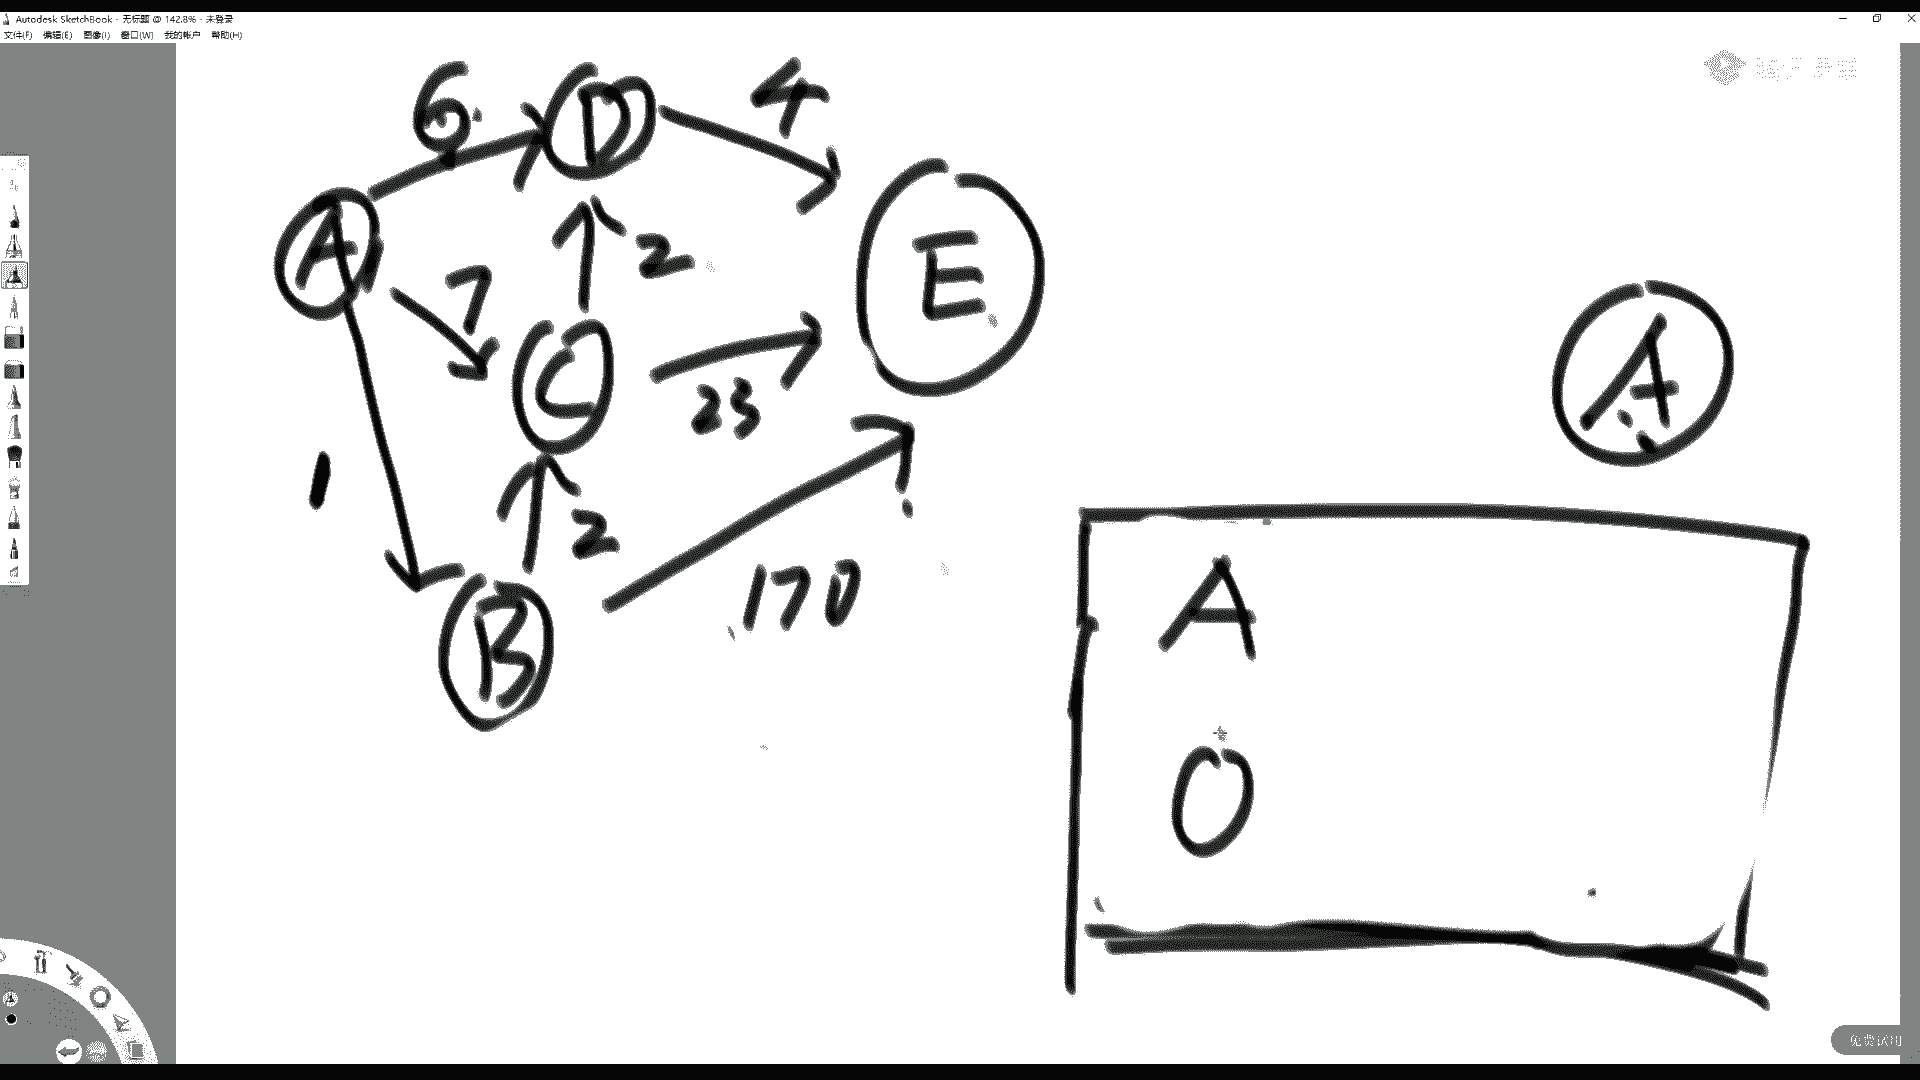 Autodesk SketchBook - 无标题 @ 142.8% - 未登录
文件(F) 编辑(E) 图像(I) 窗口(W) 我的帐户 帮助(H)
6
D
4
A
7
2
E
C
23
A
1
2
B
170
A
0
免费试用